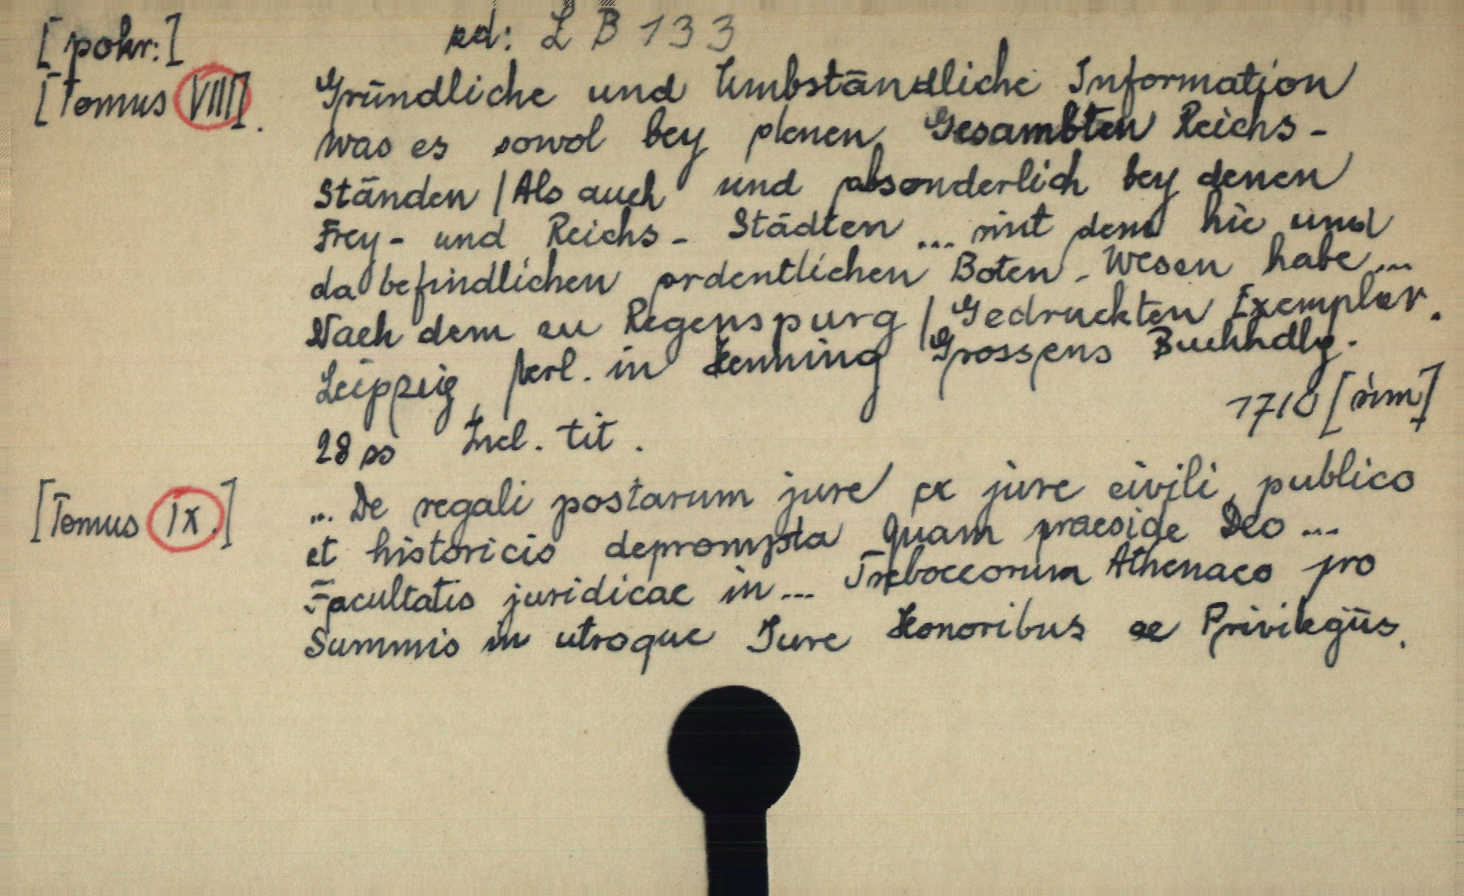 [pokr:] ad: L B 133
[Tomus VIII]. Gründliche und Umbständliche Information
Was es sowol bey denen Gesambten Reichs-
Ständen / Als auch und absonderlich bey denen
Frey- und Reichs- Städten ... mit dem hie und
da befindlichen ordentlichen Boten-Wesen habe ...
Nach dem zu Regenspurg / Gedruckten Exemplar.
Leipzig, Verl. in Henning Grossens Buchhdlg.
1710 [rim]
28 ss Incl. tit.
[Tomus IX.] ... De regali postarum jure ex jure civili, publico
et historicis deprompta quam praeside Deo ...
Facultatis juridicae in ... Treboccorum Athenaeo pro
Summis in utroque Jure Honoribus ac Privilegiis.